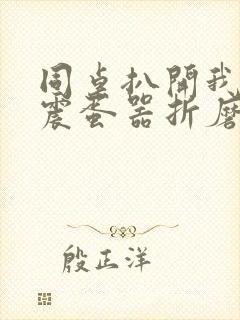 同桌扒開我
震蛋器折磨
殷正洋